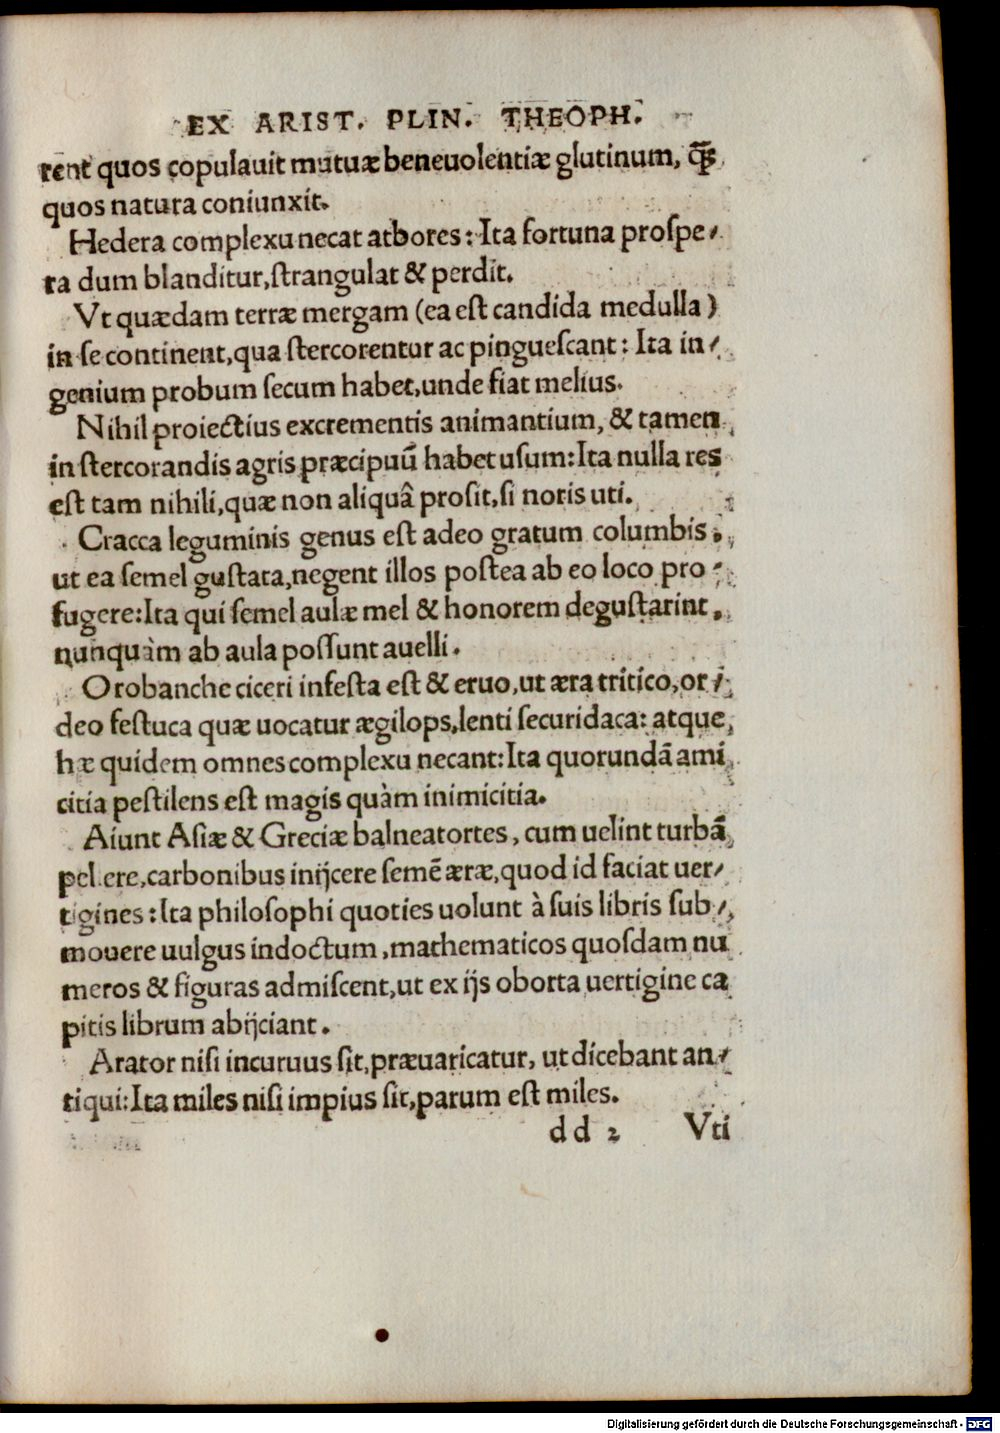 EX ARIST. PLIN. THEOPH.
rent quos copulauit mutuæ beneuolentiæ glutinum, ꝙ̃
quos natura coniunxit.
Hedera complexu necat atbores: Ita fortuna prospe-
ra dum blanditur, strangulat & perdit.
Vt quædam terræ mergam (ea est candida medulla)
in se continent, qua stercorentur ac pinguescant: Ita in-
genium probum secum habet, unde fiat melius.
Nihil proiectius excrementis animantium, & tamen
in stercorandis agris præcipuũ habet usum: Ita nulla res
est tam nihili, quæ non aliquâ prosit, si noris uti.
Cracca leguminis genus est adeo gratum columbis,
ut ea semel gustata, negent illos postea ab eo loco pro-
fugere: Ita qui semel aulæ mel & honorem degustarint,
nunquàm ab aula possunt auelli.
Orobanche ciceri infesta est & eruo, ut æra tritico, or-
deo festuca quæ uocatur ægilops, lenti securidaca: atque
hæ quidem omnes complexu necant: Ita quorundã ami
citia pestilens est magis quàm inimicitia.
Aiunt Asiæ & Greciæ balneatortes, cum uelint turbã
pellere, carbonibus inijcere semẽ æræ, quod id faciat uer-
tigines: Ita philosophi quoties uolunt à suis libris sub-
mouere uulgus indoctum, mathematicos quosdam nu
meros & figuras admiscent, ut ex ijs oborta uertigine ca
pitis librum abijciant.
Arator nisi incuruus sit, præuaricatur, ut dicebant an-
tiqui: Ita miles nisi impius sit, parum est miles.
dd 2 Vti
Digitalisierung gefördert durch die Deutsche Forschungsgemeinschaft - DFG